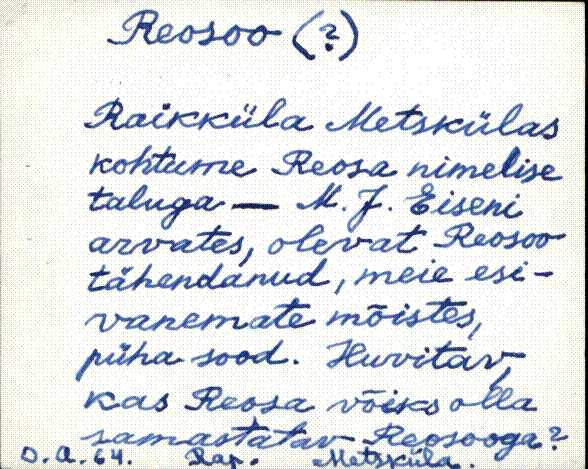 Reosoo (?)
Raikküla Metskülas
kohtume Reosa nimelise
taluga — M. J. Eiseni
arvates, olevat Reosoo
tähendanud, meie esi-
vanemate mõistes,
püha sood. Huvitav,
kas Reosa võiks olla
samastatav Reosooga?
O.A.64. Rap. Metsküla.